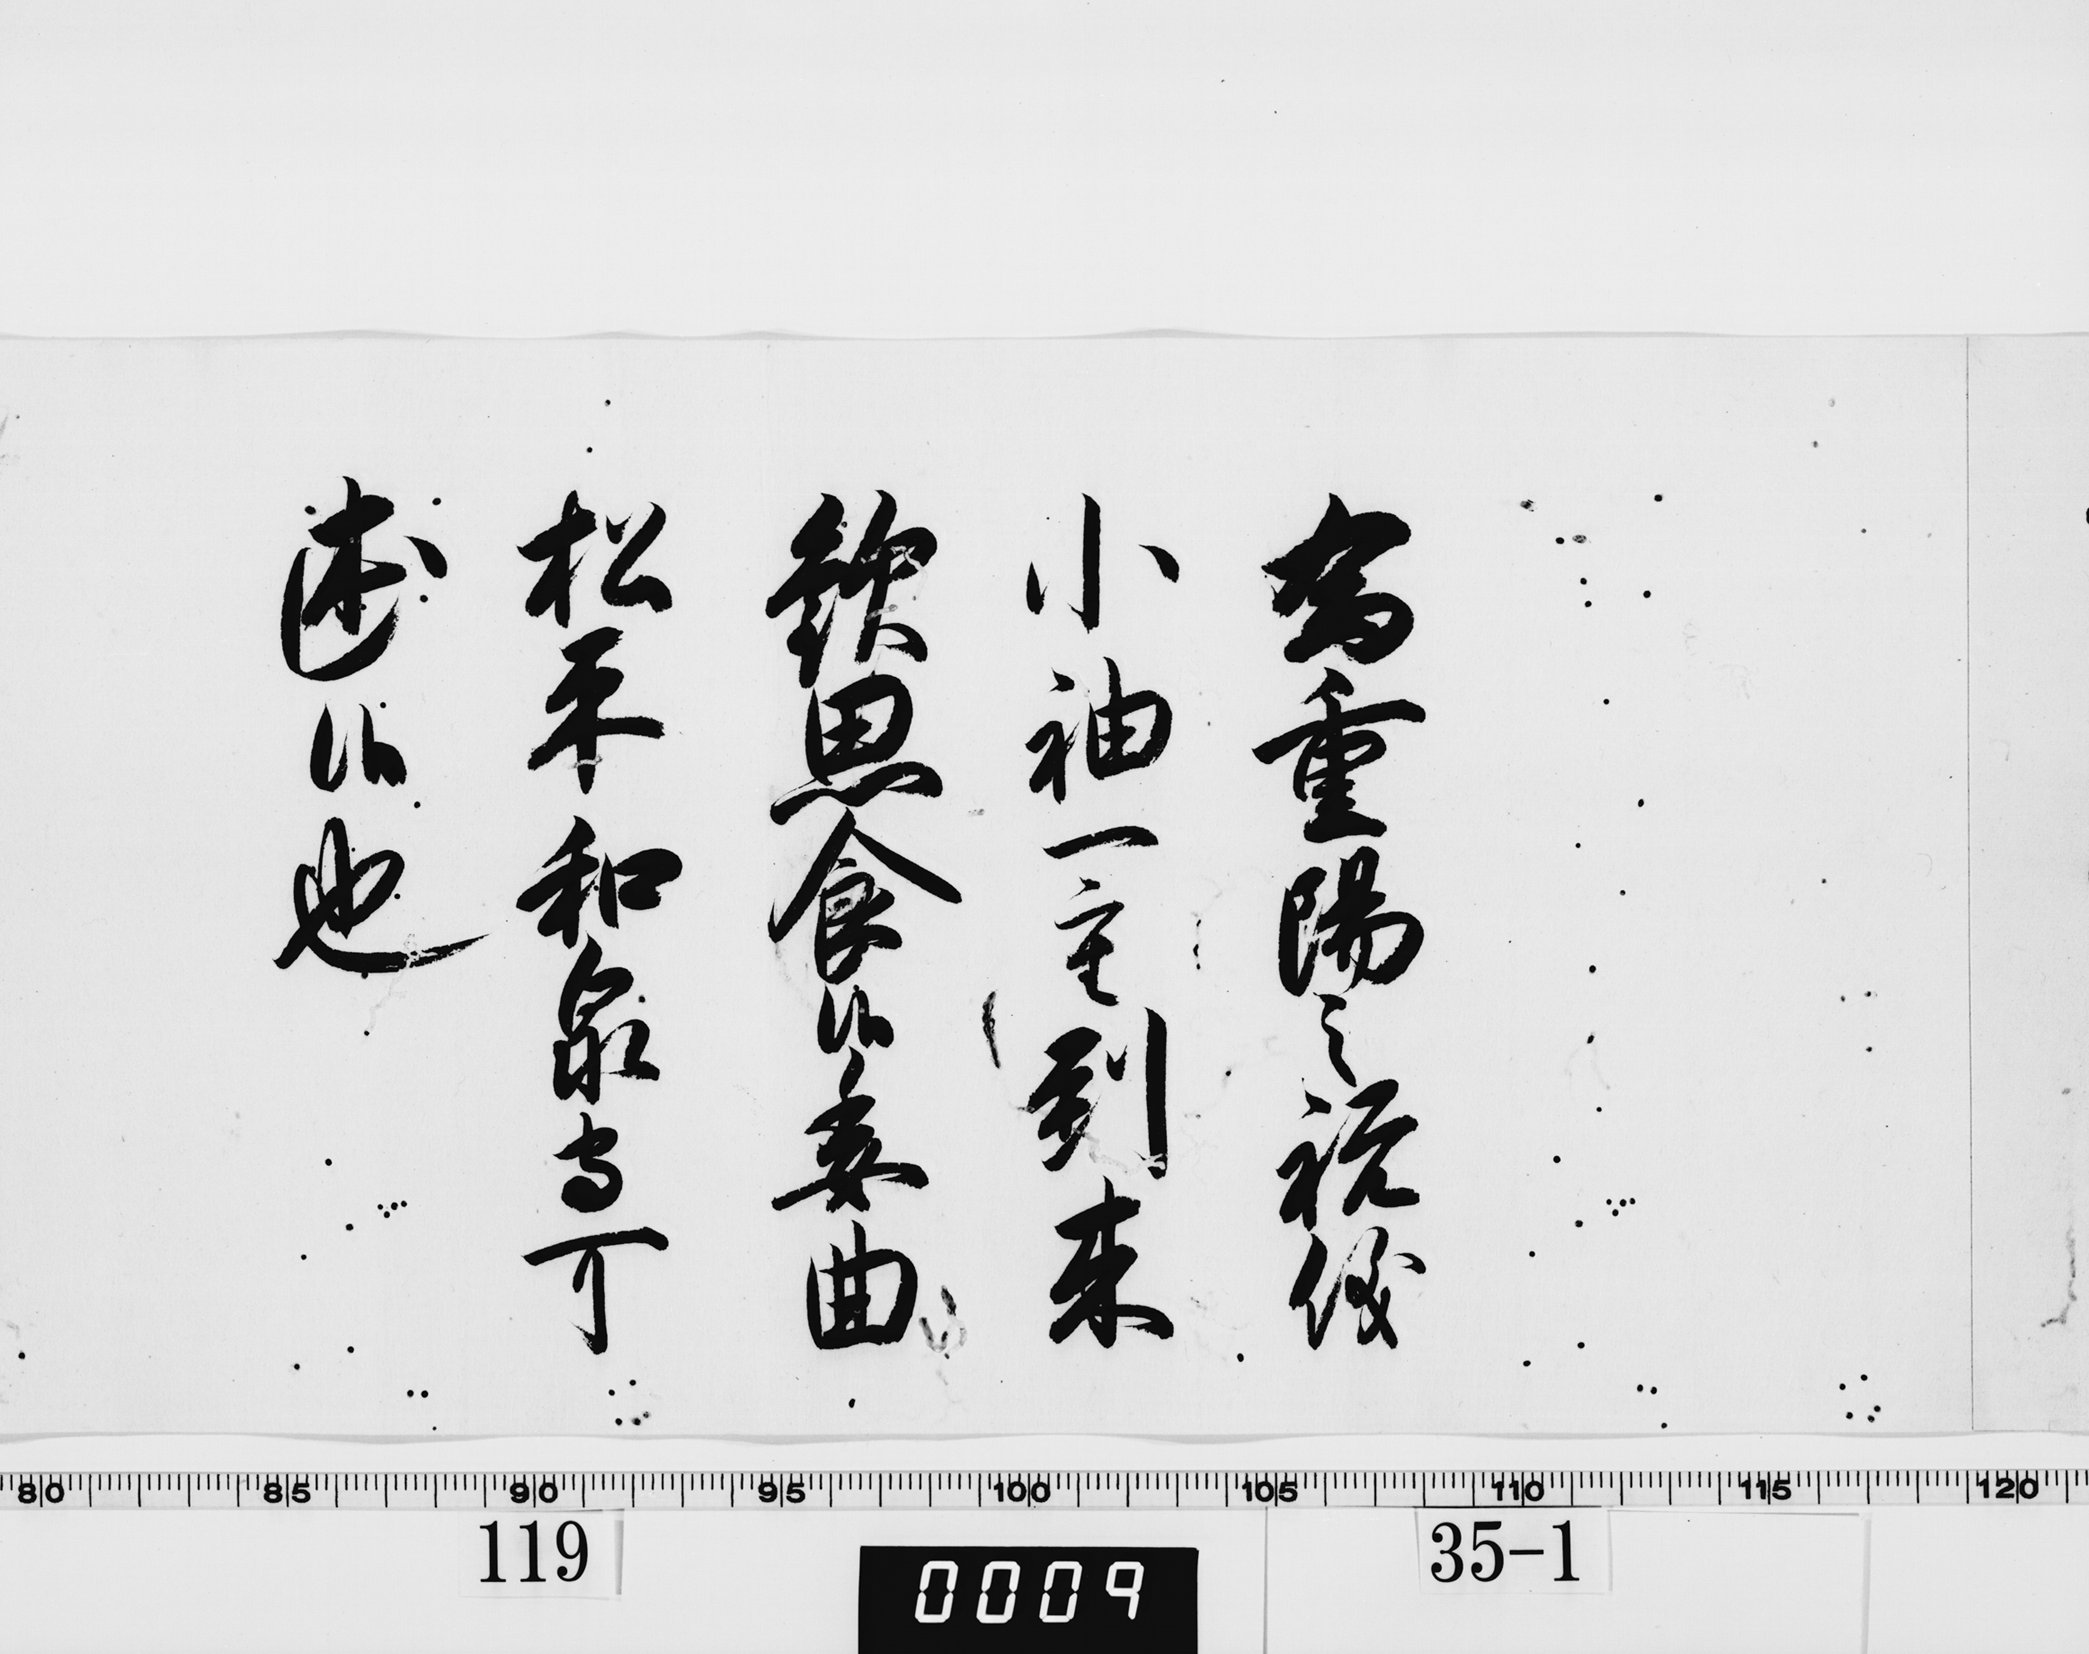 為重陽之祝儀
小袖一重到来
欽思食候委曲
松平和泉守可
述候也
80 85 90 95 100 105 110 115 120
119
0009
35-1